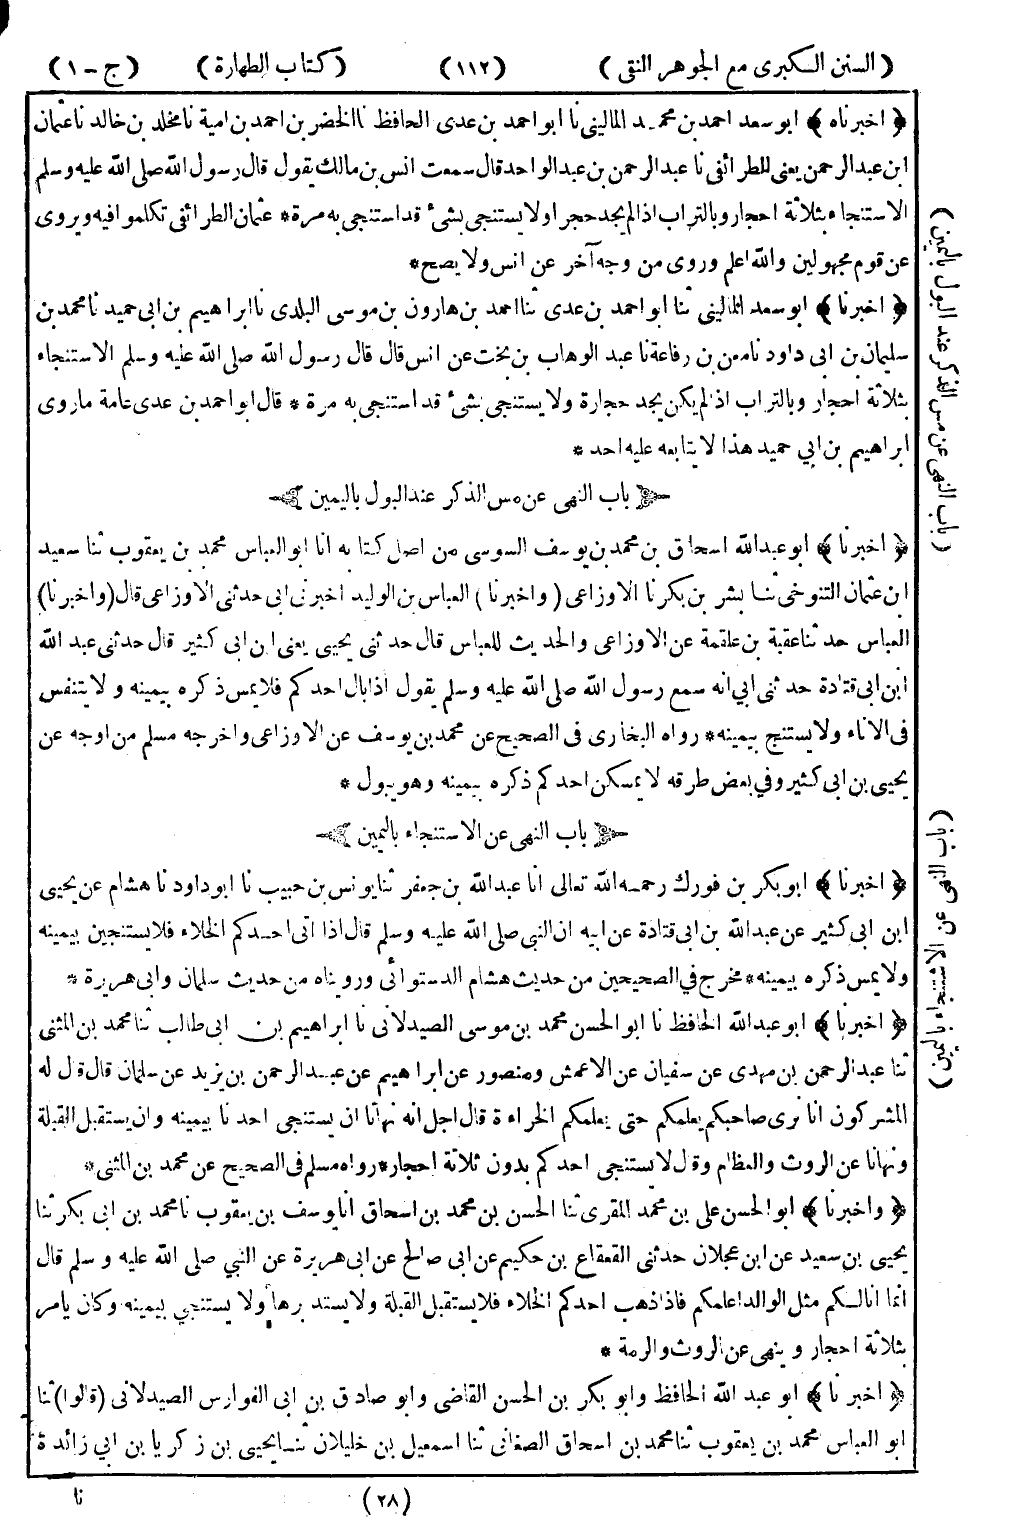 (السنن الكبرى مع الجوهر النقى) (١١٢) (كتاب الطهارة) (ج - ١)
﴿ اخبرناه ﴾ ابو سعد احمد بن محمد المالينى نا ابو احمد بن عدى الحافظ نا الخضر بن احمد بن امية نا مخلد بن خالد نا عثمان
ابن عبد الرحمن يعنى للطرائفى نا عبد الرحمن بن عبد الواحد قال سمعت انس بن مالك يقول قال رسول الله صلى الله عليه وسلم
الاستنجاء بثلاثة احجار وبالتراب اذا لم يجد حجرا ولا يستنجى بشئ قد استنجى به مرة * عثمان الطرائفى تكلموا فيه ويروى
عن قوم مجهولين والله اعلم وروى من وجه آخر عن انس ولا يصح *
﴿ اخبرنا ﴾ ابو سعد المالينى ثنا ابو احمد بن عدى ثنا احمد بن هارون بن موسى البلدى نا ابراهيم بن ابى حميد نا محمد بن
سليمان بن ابى داود نا معن بن رفاعة نا عبد الوهاب بن بخت عن انس قال قال رسول الله صلى الله عليه وسلم الاستنجاء
بثلاثة احجار وبالتراب اذا لم يكن يجد حجارة ولا يستنجى بشئ قد استنجى به مرة * قال ابو احمد بن عدى عامة ما روى
ابراهيم بن ابي حميد هذا لا يتابعه عليه احد *
باب النهى عن مس الذكر عند البول باليمين
﴿ اخبرنا ﴾ ابو عبد الله اسحاق بن محمد بن يوسف السوسى من اصل كتابه انا ابو العباس محمد بن يعقوب ثنا سعيد
ابن عثمان التنوخى ثنا بشر بن بكر نا الاوزاعى ( واخبرنا ) العباس بن الوليد اخبرنى ابى حدثنى الاوزاعى قال (واخبرنا)
العباس حدثنا عقبة بن علقمة عن الاوزاعى والحديث للعباس قال حدثنى يحيى يعنى ابن ابى كثير قال حدثنى عبد الله
ابن ابى قتادة حدثنى ابى انه سمع رسول الله صلى الله عليه وسلم يقول اذا بال احدكم فلا يمس ذكره بيمينه ولا يتنفس
فى الاناء ولا يستنج بيمينه * رواه البخارى فى الصحيح عن محمد بن يوسف عن الاوزاعى واخرجه مسلم من اوجه عن
يحيى بن ابى كثير وفي بعض طرقه لا يمسكن احدكم ذكره بيمينه وهو يبول *
باب النهى عن الاستنجاء باليمين
﴿ اخبرنا ﴾ ابو بكر بن فورك رحمه الله تعالى انا عبد الله بن جعفر ثنا يونس بن حبيب نا ابو داود نا هشام عن يحيى
ابن ابى كثير عن عبد الله بن ابى قتادة عن ابيه ان النبى صلى الله عليه وسلم قال اذا اتى احدكم الخلاء فلا يستنجين بيمينه
ولا يمس ذكره بيمينه * مخرج في الصحيحين من حديث هشام الدستوائى ورويناه من حديث سلمان وابى هريرة *
﴿ اخبرنا ﴾ ابو عبد الله الحافظ نا ابو الحسن محمد بن موسى الصيدلانى نا ابراهيم بن ابى طالب ثنا محمد بن المثنى
ثنا عبد الرحمن بن مهدى عن سفيان عن الاعمش ومنصور عن ابراهيم عن عبد الرحمن بن يزيد عن سلمان قال قال له
المشركون انا نرى صاحبكم يعلمكم حتى يعلمكم الخراءة قال اجل انه نهانا ان يستنجى احدنا بيمينه وان يستقبل القبلة
ونهانا عن الروث والعظام وقال لا يستنجى احدكم بدون ثلاثة احجار * رواه مسلم فى الصحيح عن محمد بن المثنى *
﴿ واخبرنا ﴾ ابو الحسن على بن محمد المقرى ثنا الحسن بن محمد بن اسحاق انا يوسف بن يعقوب نا محمد بن ابى بكر ثنا
يحيى بن سعيد عن ابن عجلان حدثنى القعقاع بن حكيم عن ابى صالح عن ابى هريرة عن النبي صلى الله عليه وسلم قال
انما انا لكم مثل الوالد اعلمكم فاذا ذهب احدكم الخلاء فلا يستقبل القبلة ولا يستدبرها ولا يستنجي بيمينه وكان يامر
بثلاثة احجار وينهى عن الروث والرمة *
﴿ اخبرنا ﴾ ابو عبد الله الحافظ وابو بكر بن الحسن القاضى وابو صادق بن ابى الفوارس الصيدلانى (قالوا) ثنا
ابو العباس محمد بن يعقوب ثنا محمد بن اسحاق الصغانى ثنا اسمعيل بن خليلان ثنا يحيى بن زكريا بن ابي زائدة
(٢٨) نا
( باب النهى عن مس الذكر عند البول باليمين )